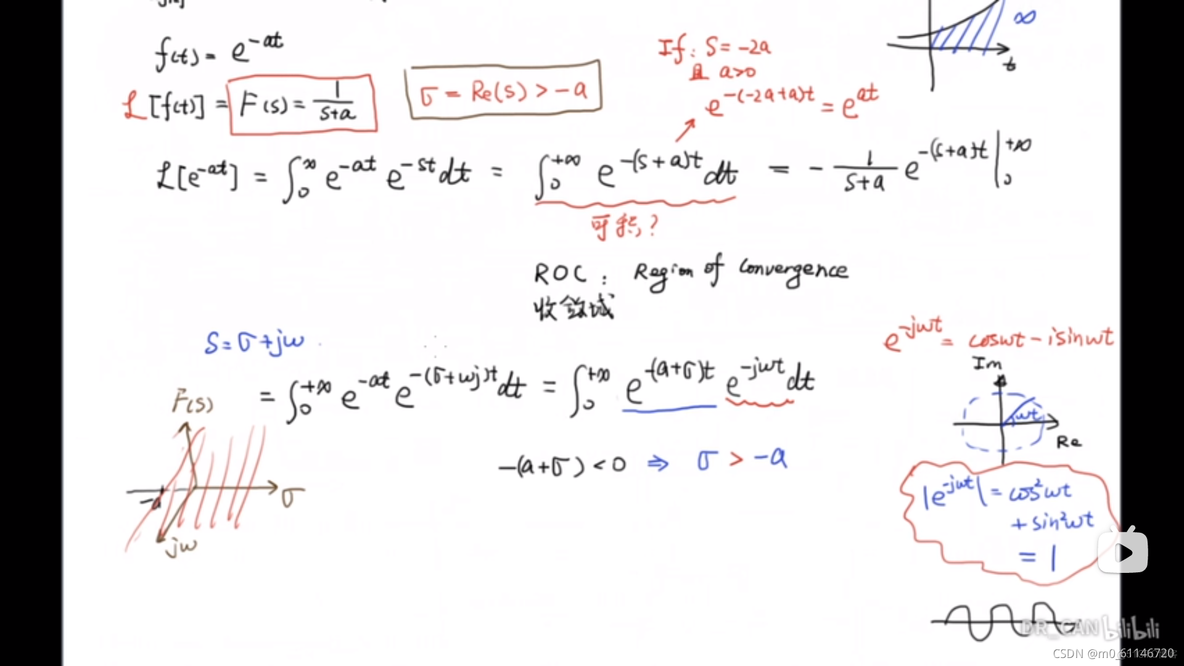 f(t) = e^{-at}
∞
t
If: S = -2a
且 a>0
e^{-(-2a+a)t} = e^{at}
ℒ[f(t)] = F(s) = \frac{1}{s+a}
σ = Re(s) > -a
ℒ[e^{-at}] = ∫_0^∞ e^{-at} e^{-st} dt = ∫_0^{+∞} e^{-(s+a)t} dt = - \frac{1}{s+a} e^{-(s+a)t} |_0^{+∞}
可积?
ROC: Region of Convergence
收敛域
S = σ + jω
e^{-jωt} = cosωt - isinωt
= ∫_0^{+∞} e^{-at} e^{-(σ+ωj)t} dt = ∫_0^{+∞} e^{-(a+σ)t} e^{-jωt} dt
Im
ωt
Re
F(s)
-a
σ
jω
-(a+σ) < 0 ⇒ σ > -a
|e^{-jωt}| = cos²ωt
+ sin²ωt
= 1
DR_CAN bilibili
CSDN @m0_61146720